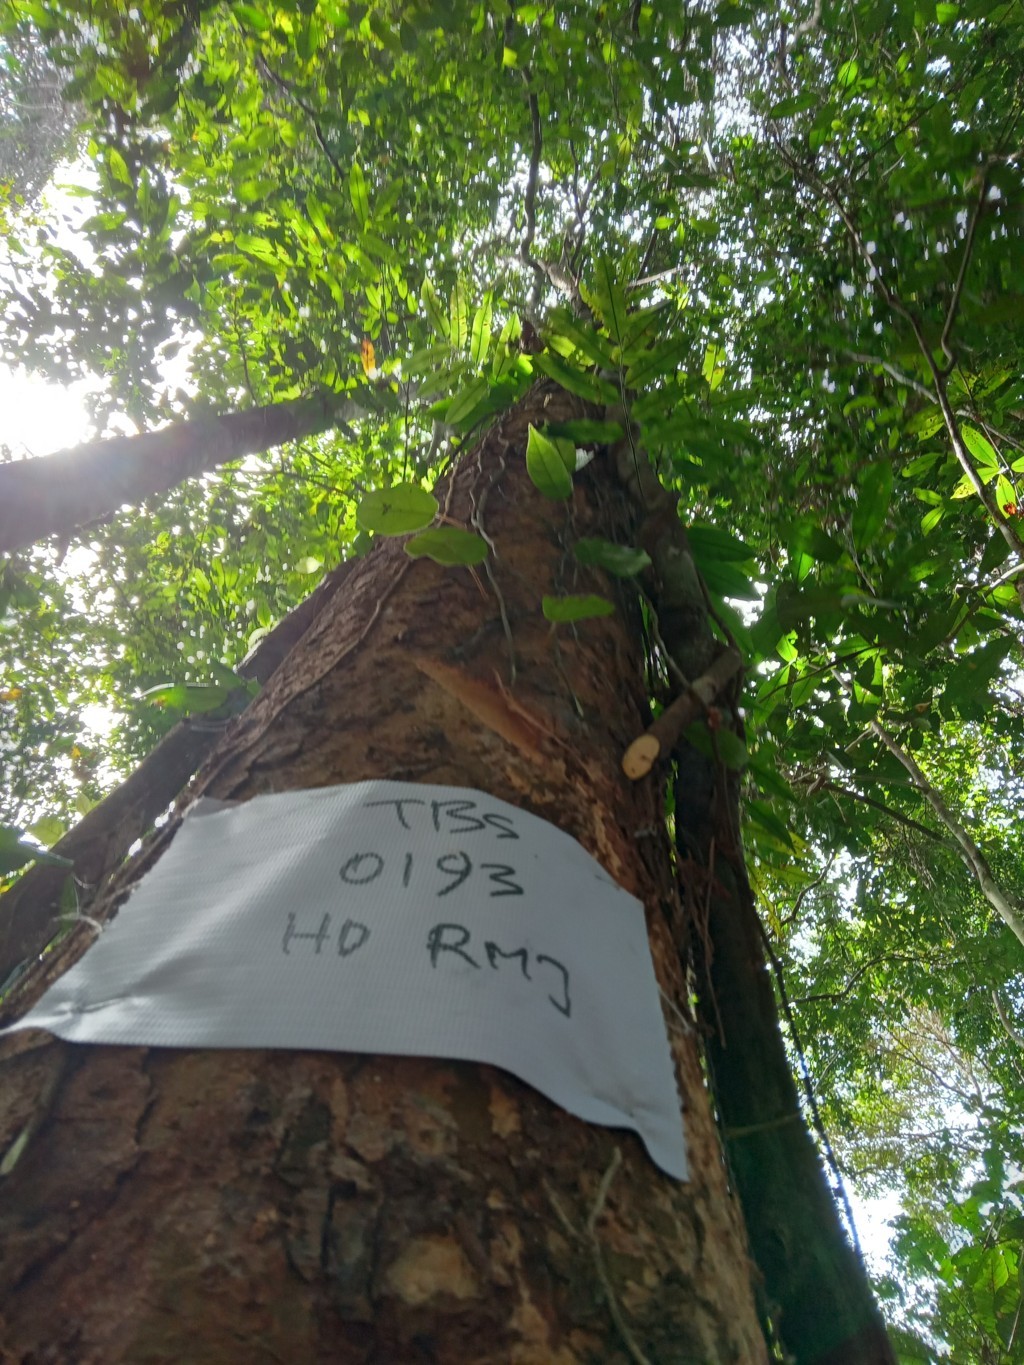 TBS
0193
HD RMJ